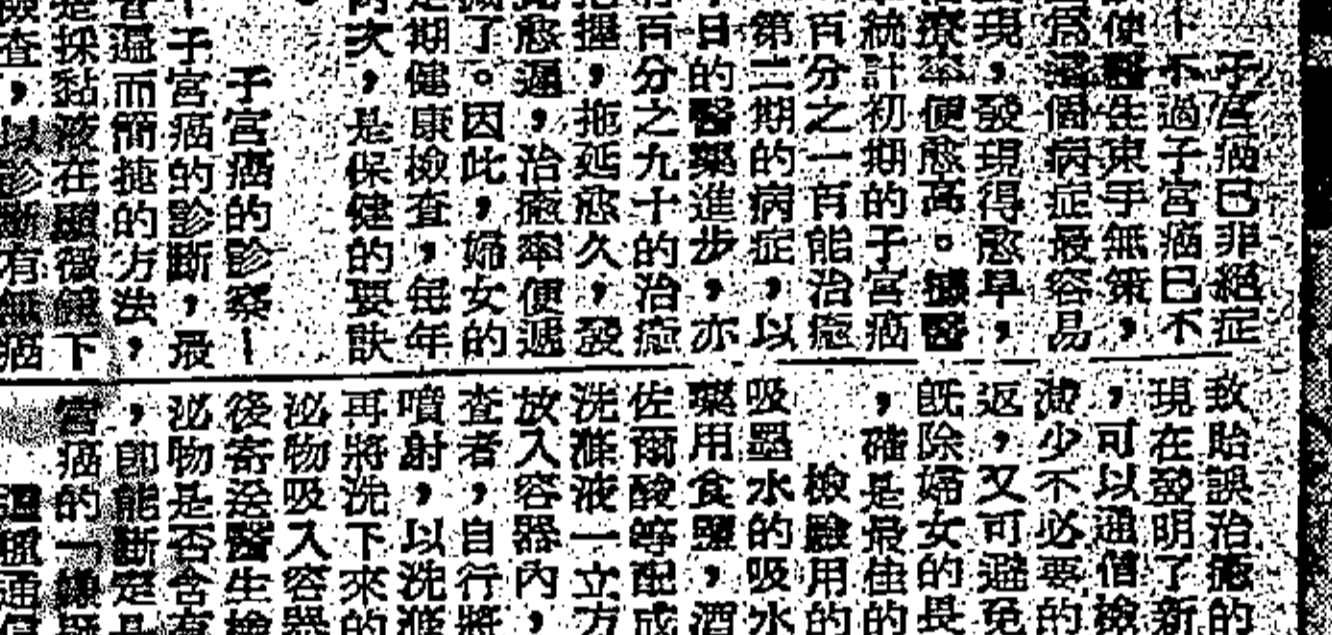 子宮癌已非絕症
不過子宮癌已不
使醫生束手無策，
為這個病症最容易
現，發現得愈早，
療率便愈高。據醫
統計初期的子宮癌
百分之一百能治癒
第二期的病症，以
日的醫藥進步，亦
百分之九十的治癒
把握，拖延愈久，發
愈遲，治癒率便遞
減了。因此，婦女的
定期健康檢查，每年
兩次，是保健的要訣
子宮癌的診察—
子宮癌的診斷，最
普遍而簡捷的方法，
是採黏液在顯微鏡下
檢查，以診斷有無癌
致貽誤治癒的
現在發明了新
，可以通僧檢
減少不必要的
返，又可避免
既除婦女的畏
，確是最佳的
檢驗用的
吸墨水的吸水
藥用食鹽，酒
佐爾酸等配成
洗滌液一立方
放入容器內，
查者，自行將
噴射，以洗滌
再將洗下來的
泌物吸入容器
後寄送醫生檢
泌物是否含有
，即能斷定是
宮癌的一線
通